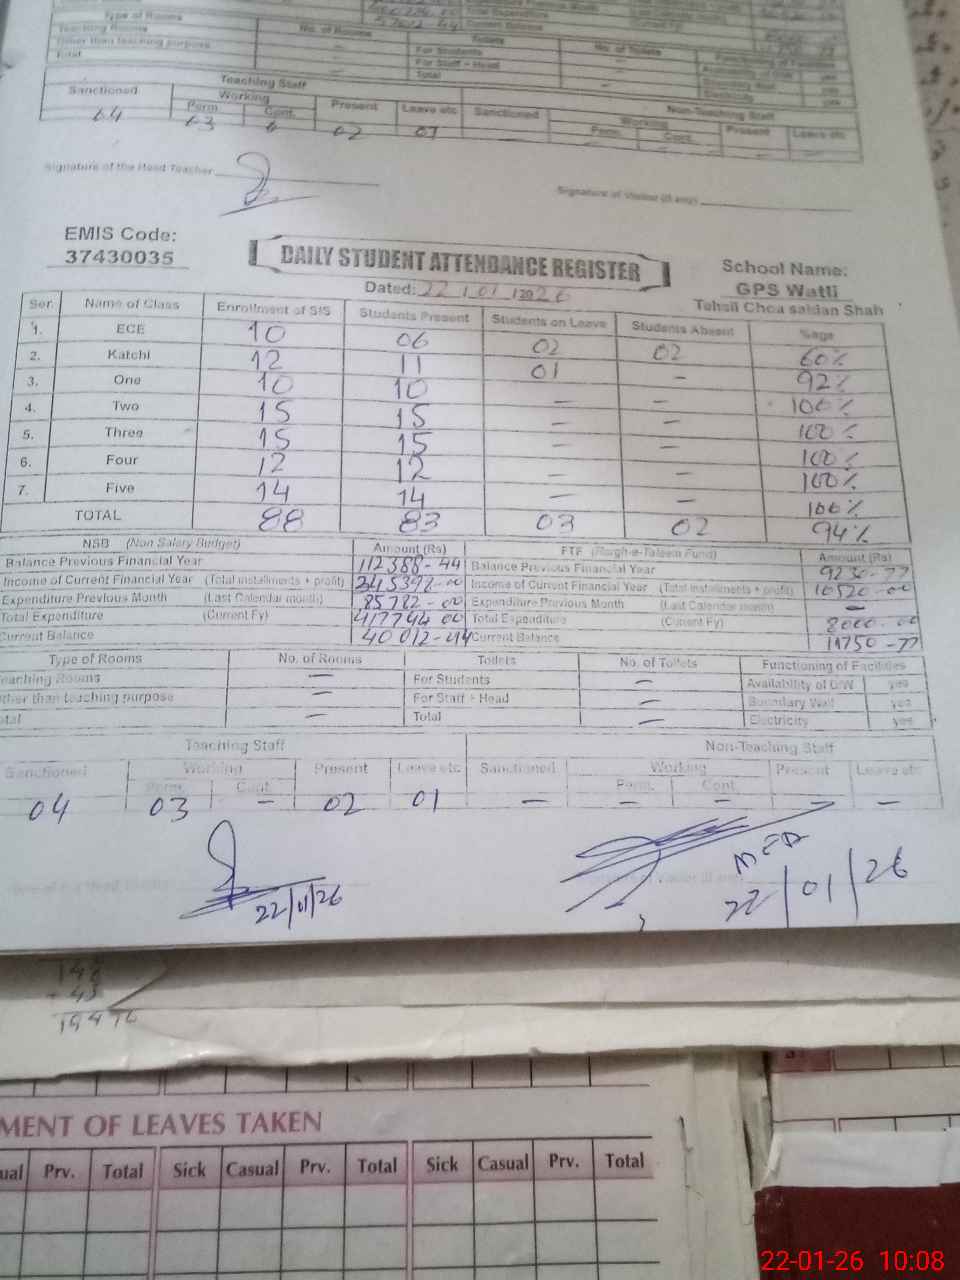 Type of Rooms No. of Rooms Toilets No. of Toilets
Teaching Rooms
Other than teaching purpose For Students
Total For Staff + Head
Total
Electricity yes
Teaching Staff Non-Teaching Staff
Sanctioned Working Present Leave etc Sanctioned Working Present Leave etc
Perm. Cont. Perm. Cont.
04 03 02 01
Signature of the Head Teacher
Signature of Visitor (if any)
EMIS Code:
37430035
DAILY STUDENT ATTENDANCE REGISTER
Dated: 22/01/2026
School Name:
GPS Watli
Tehsil Choa saidan Shah
Ser. Name of Class Enrollment of SIS Students Present Students on Leave Students Absent %age
1. ECE 10 06 02 02 60%
2. Katchi 12 11 01 - 92%
3. One 10 10 - - 100%
4. Two 15 15 - - 100%
5. Three 15 15 - - 100%
6. Four 12 12 - - 100%
7. Five 14 14 - - 100%
TOTAL 88 83 03 02 94%
NSB (Non Salary Budget) Amount (Rs) FTF (Frogh-e-Taleem Fund) Amount (Rs)
Balance Previous Financial Year 112388-44 Balance Previous Financial Year 9230-77
Income of Current Financial Year (Total installments + profit) 345398-00 Income of Current Financial Year (Total installments + profit) 10520-00
Expenditure Previous Month (Last Calendar month) 85782-00 Expenditure Previous Month (Last Calendar month) -
Total Expenditure (Current Fy) 417744-00 Total Expenditure (Current Fy) 8000-00
Current Balance 40012-44 Current Balance 11750-77
Type of Rooms No. of Rooms Toilets No. of Toilets Functioning of Facilities
Teaching Rooms - For Students - Availability of D/W yes
Other than teaching purpose - For Staff + Head - Boundary Wall yes
Total - Total - Electricity yes
Teaching Staff Non-Teaching Staff
Sanctioned Working Present Leave etc Sanctioned Working Present Leave etc
Perm. Cont. Perm. Cont.
04 03 - 02 01 - - - - -
22/01/26
22/01/26
148
MENT OF LEAVES TAKEN
ual Prv. Total Sick Casual Prv. Total Sick Casual Prv. Total
22-01-26 10:08